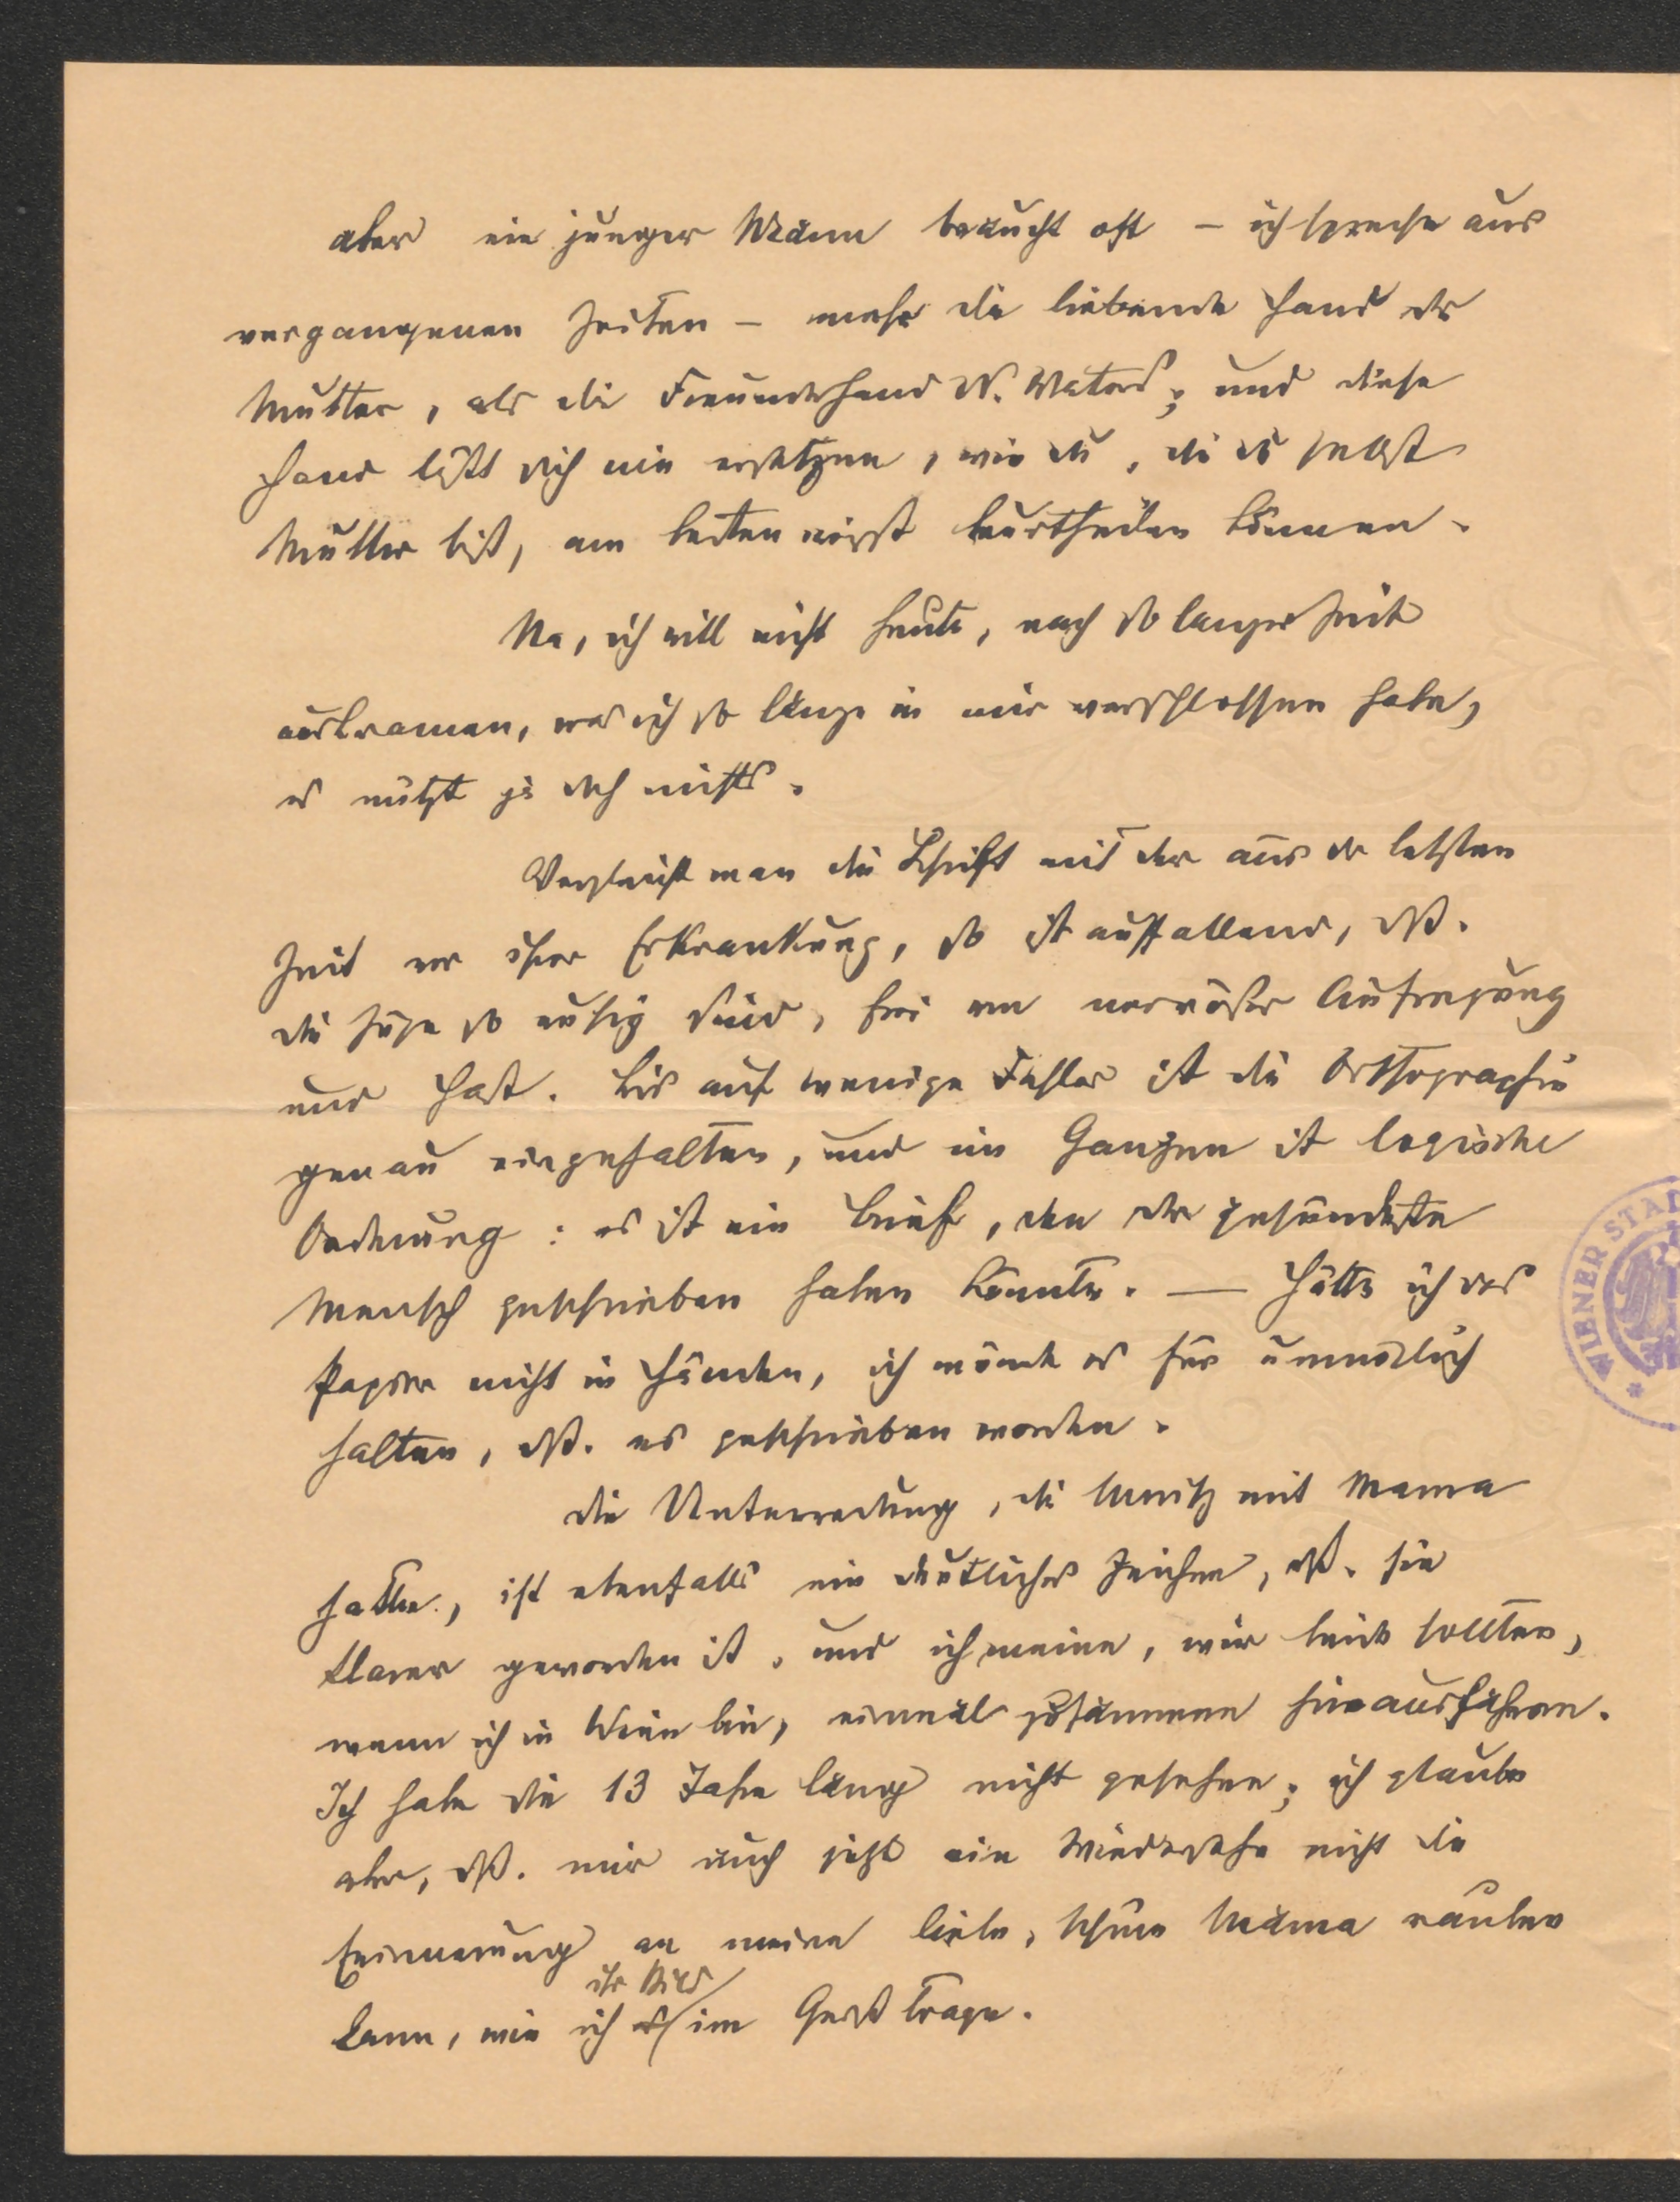 aber ein junger Mann braucht oft – ich spreche aus
vergangenen Zeiten – mehr die liebende Hand der
Mutter, als die Freundeshand d. Vaters; und diese
Hand läßt sich nie ersetzen, wie du, die du selbst
Mutter bist, am besten wirst beurtheilen können.
Na, ich will nicht heute, nach so langer Zeit
auskramen, was ich so lange in mir verschlossen habe,
es nützt ja doch nichts.
Vergleicht man die Schrift mit der aus der letzten
Zeit vor ihrer Erkrankung, so ist auffallend, dß.
die Züge so ruhig sind, frei von nervöser Aufregung
und Hast. Bis auf wenige Fehler ist die Orthographie
genau eingehalten, und im Ganzen ist logische
Ordnung: es ist ein Brief, den der gesündeste
Mensch geschrieben haben könnte. — Hätte ich das
Papier nicht in Händen, ich würde es für unmöglich
halten, dß. es geschrieben worden.
Die Unterredung, die Moritz mit Mama
hatte, ist ebenfalls ein deutliches Zeichen, dß. sie
klarer geworden ist, und ich meine, wir beide sollten,
wenn ich in Wien bin, einmal zusammen hinausfahren.
Ich habe sie 13 Jahre lang nicht gesehen; ich glaube
aber, dß. mir auch jetzt ein Wiedersehn nicht die
Erinnerung an meine liebe, schöne Mama rauben
ihr Bild
kann, wie ich es im Geist trage.
WIENER STAD